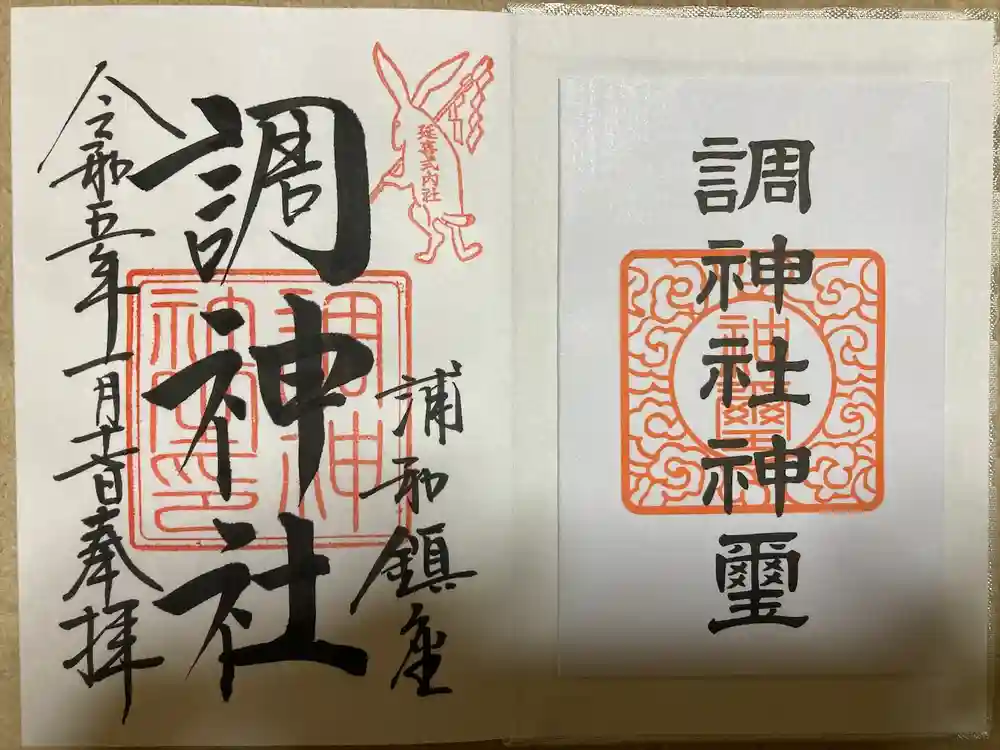 調神社神璽
神璽
延喜式内社
浦和鎮座
調神社
令和五年一月十一日奉拝